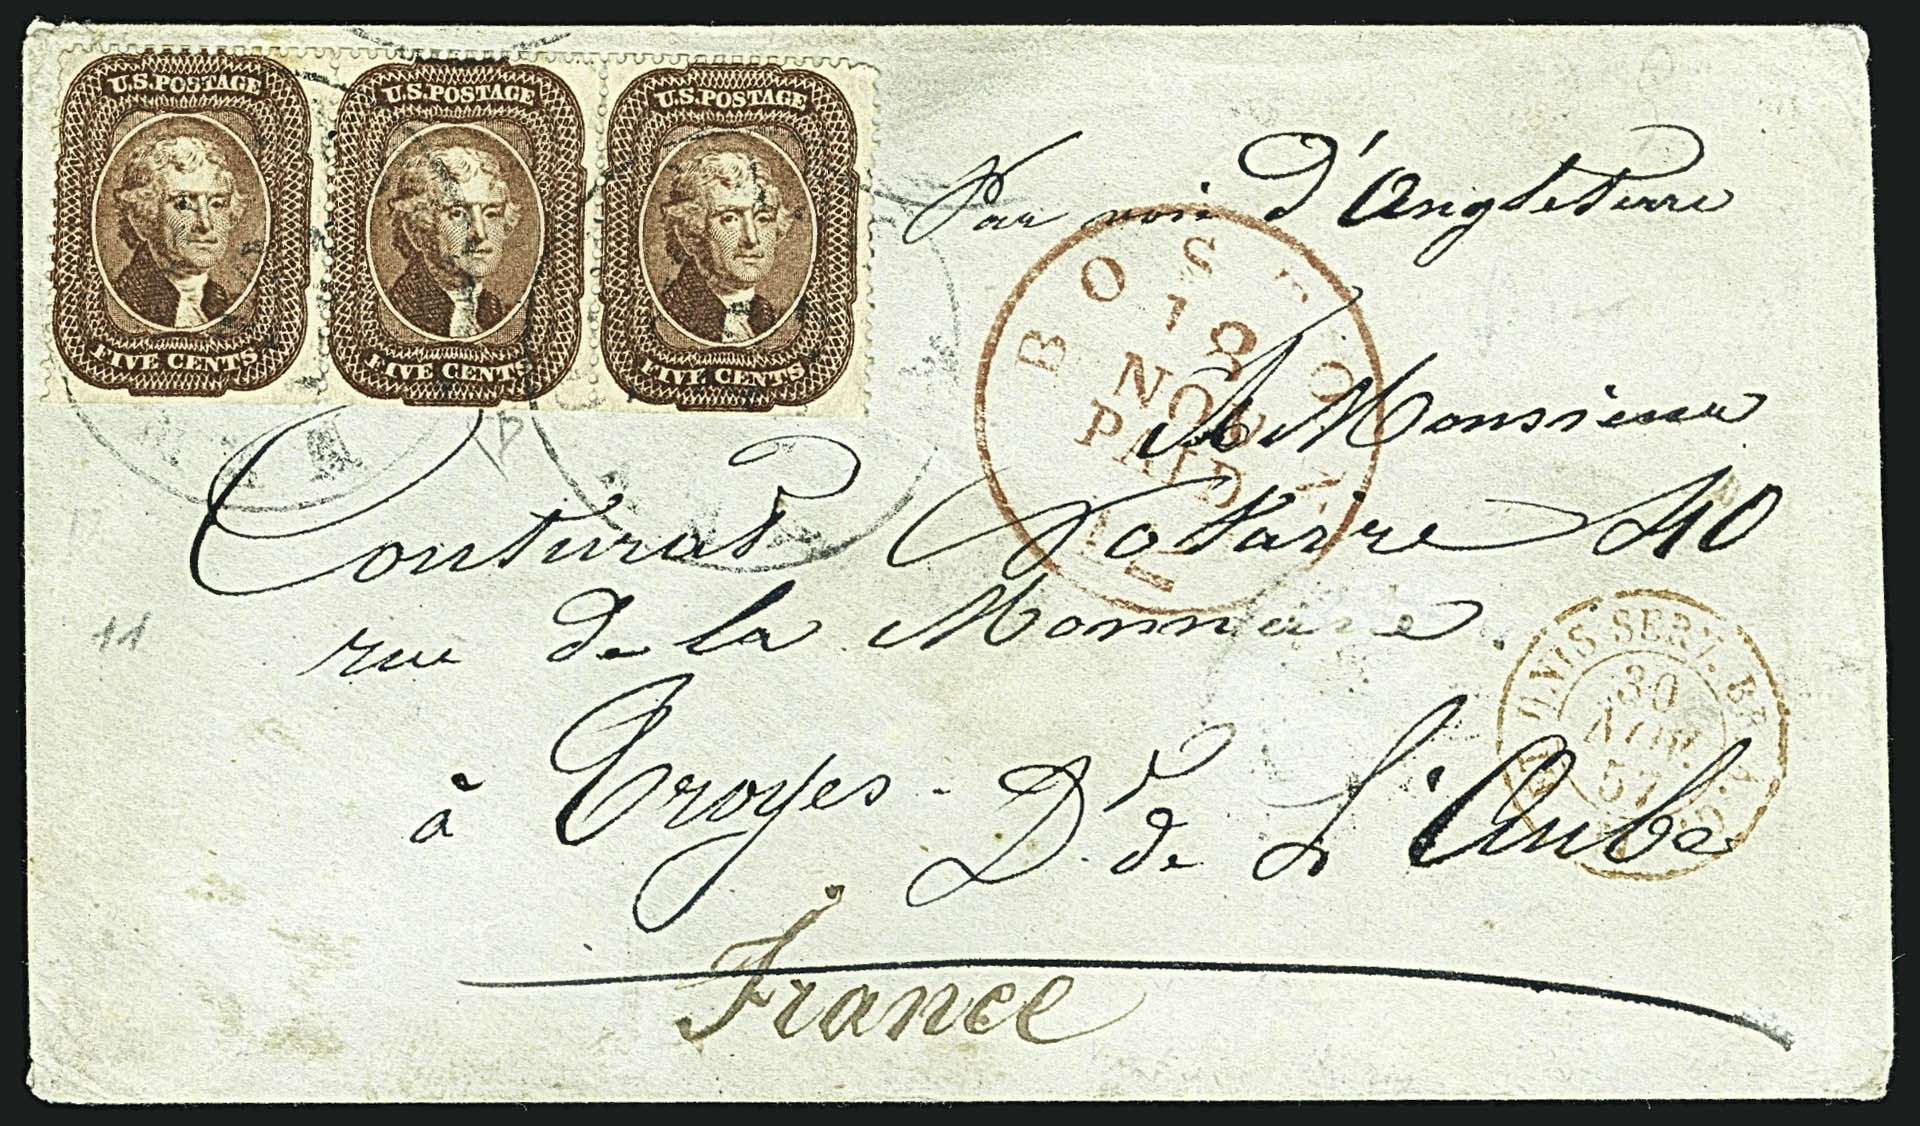 U.S. POSTAGE
FIVE CENTS
U.S. POSTAGE
FIVE CENTS
U.S. POSTAGE
FIVE CENTS
Par voie d'Angleterre
BOSTON
18
NOV
PAID
A Monsieur
Couturat Notaire 40
rue de la Monnaie.
à Troyes - Dt de L'Aube
France
SERV. BR.
30
NOV.
57
11